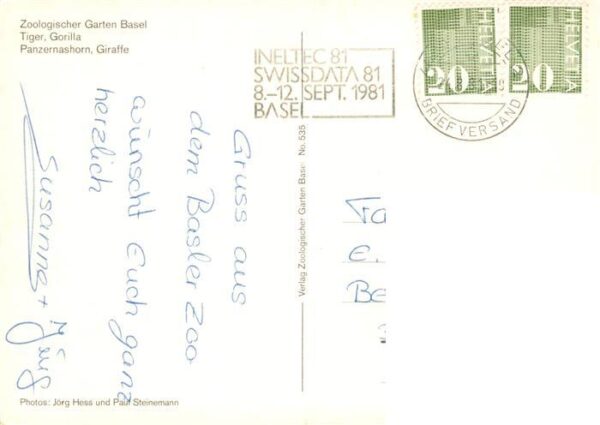 Zoologischer Garten Basel
Tiger, Gorilla
Panzernashorn, Giraffe
INELTEC 81
SWISSDATA 81
8.-12. SEPT. 1981
BASEL
HELVETIA
20
HELVETIA
20
BRIEFVERSAND
Gruss aus
dem Basler Zoo
wünscht Euch ganz
herzlich
Susanne + Jürg
Verlag Zoologischer Garten Basel No. 535
E.
Be
Photos: Jörg Hess und Paul Steinemann